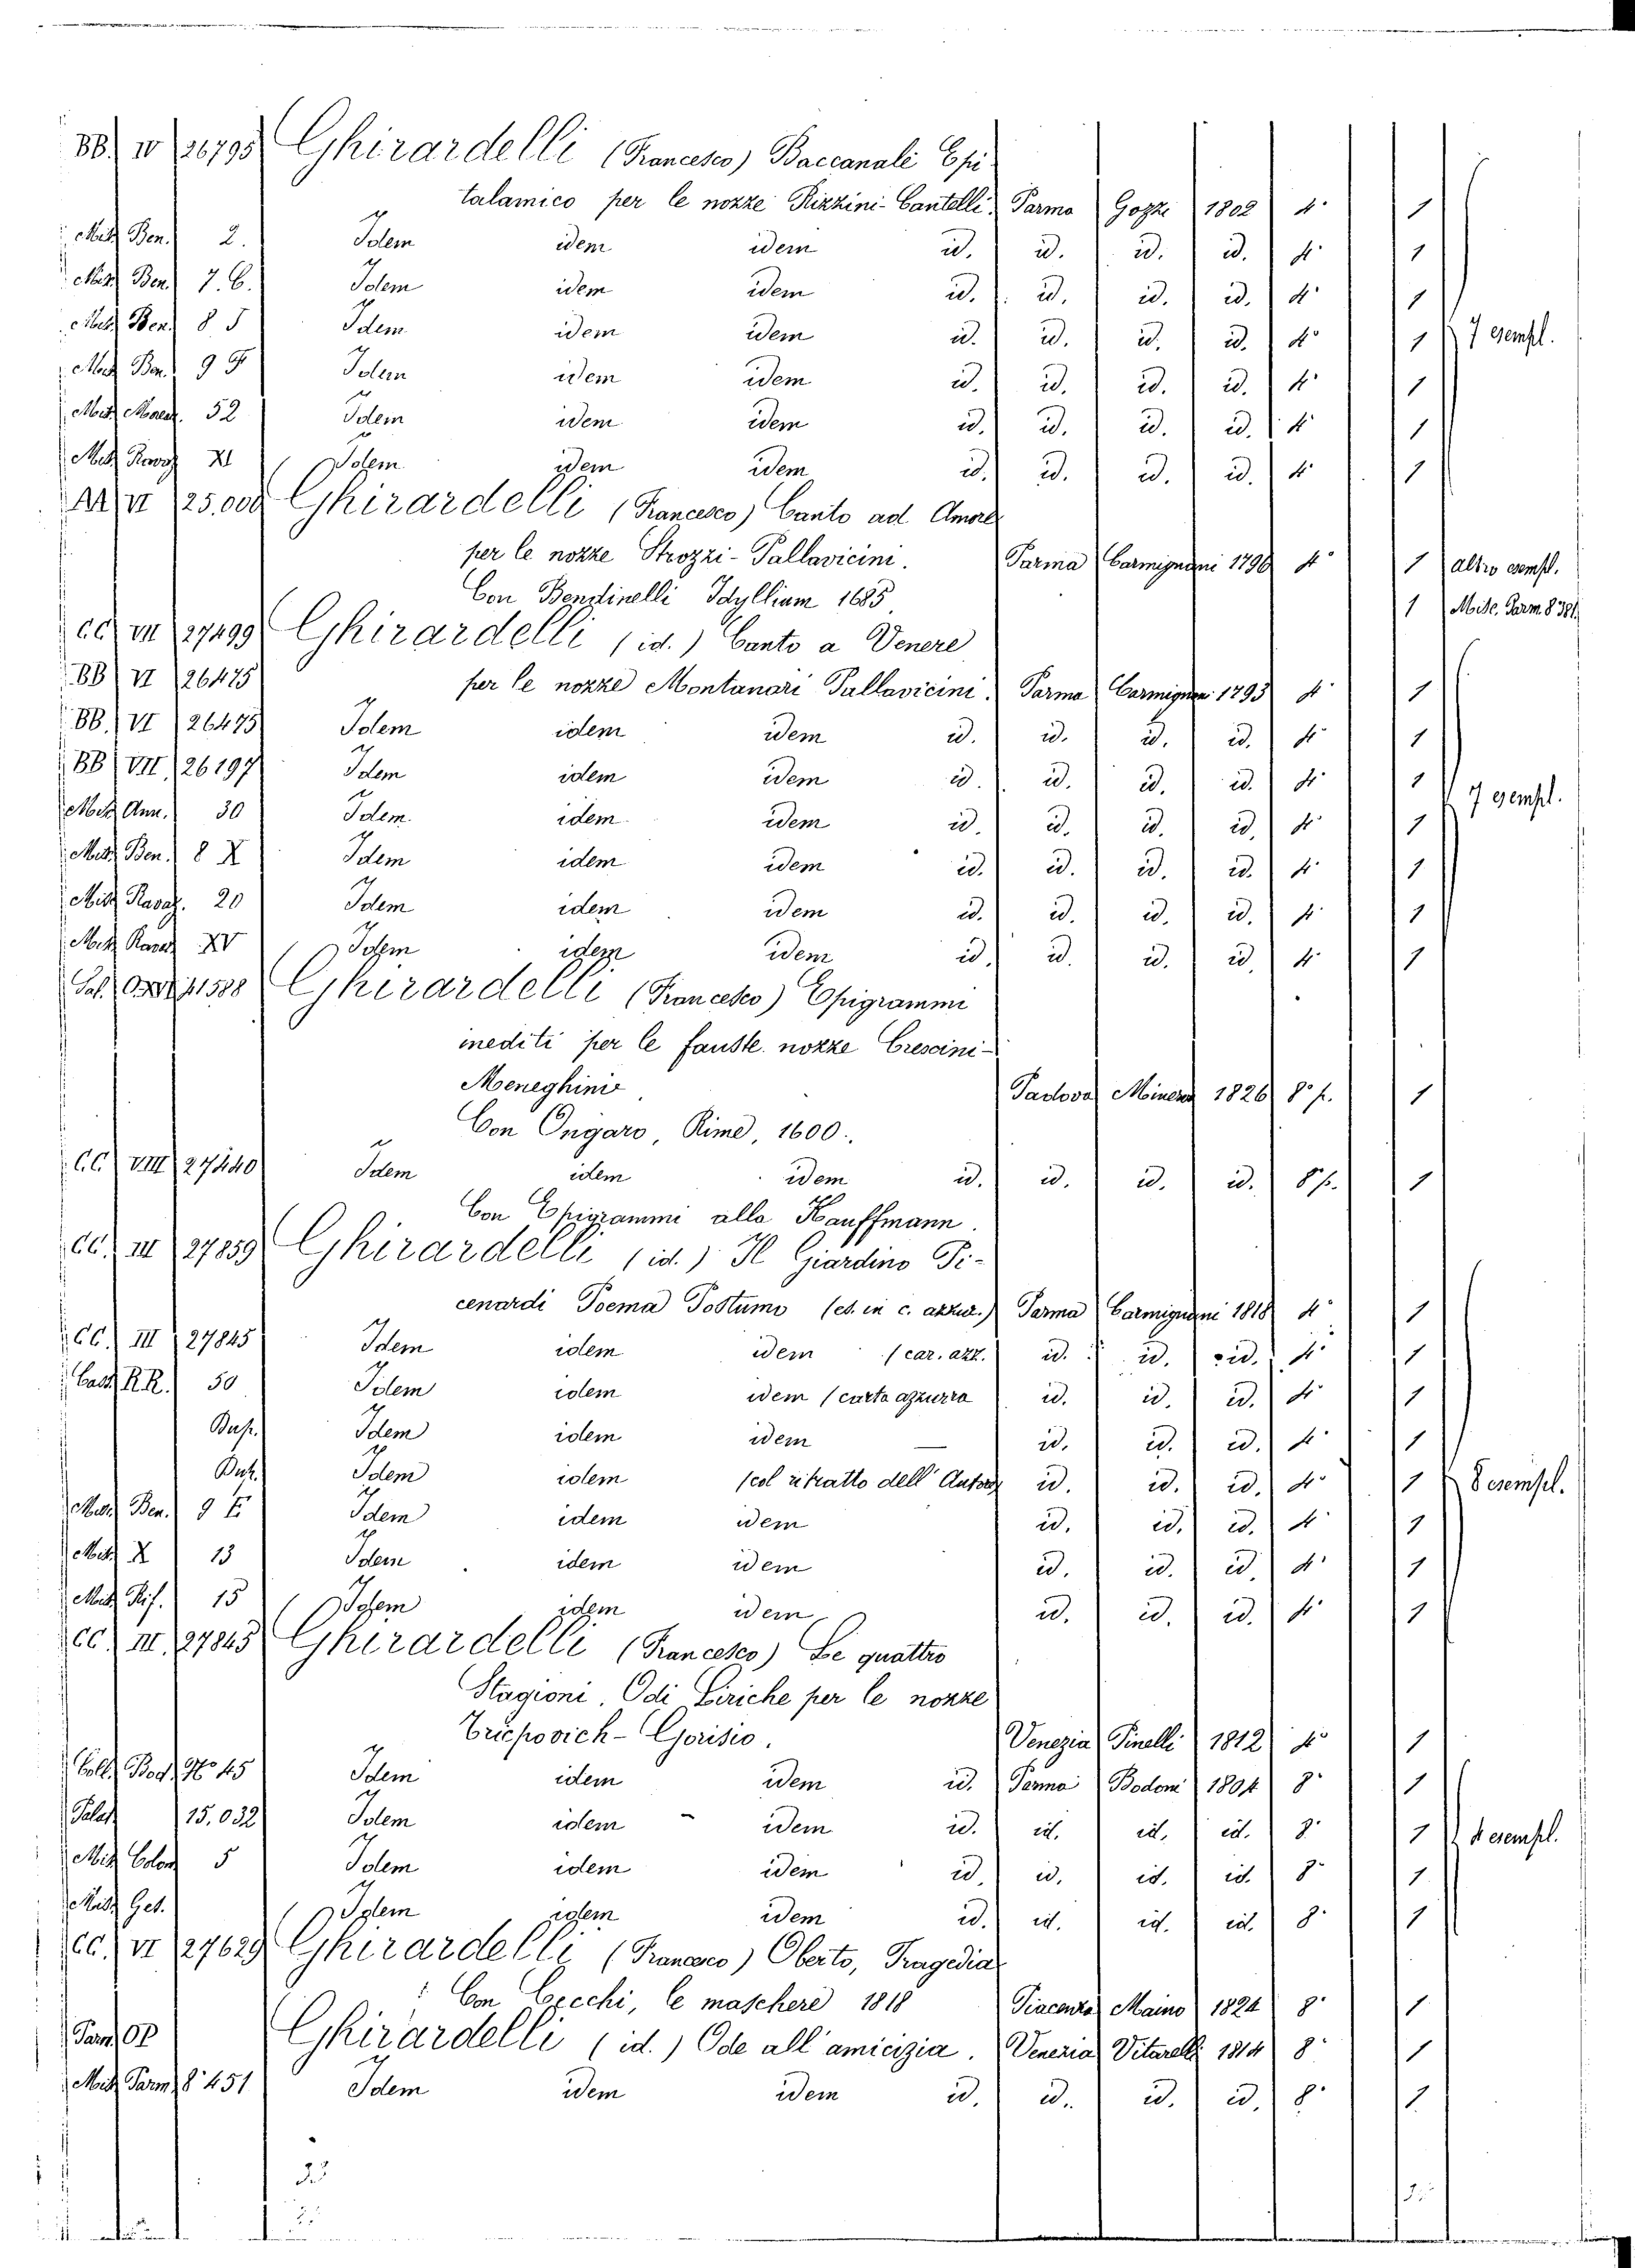 BB. IV 26795 Ghirardelli (Francesco) Baccanale Epi-
talamico per le nozze Rizzini-Cantelli. Parma Gozzi 1802 4° 1
Misc. Ben. 2. Idem idem idem id. id. id. id. 4° 1
Misc. Ben. 7. 6. Idem idem idem id. id. id. id. 4° 1
Misc. Ben. 8 5 Idem idem idem id. id. id. id. 4° 1 7 esempl.
Misc. Ben. 9 Idem idem idem id. id. id. id. 4° 1
Misc. 52 Idem idem idem id. id. id. id. 4° 1
Misc. Ravaz. XI Idem idem idem id. id. id. id. 4° 1
AA. VI 25.000 Ghirardelli (Francesco) Canto ad Amore
per le nozze Strozzi-Pallavicini. Parma Carmignani 1796 4° 1 altro esempl.
Con Bendinelli Idyllium 1685 1 Misc. Parm. 8° 381.
CC. VII 27499 Ghirardelli (id.) Canto a Venere
BB VI 26475 per le nozze Montanari Pallavicini. Parma Carmignan 1793 4° 1
BB. VI 26475 Idem idem idem id. id. id. id. 4° 1
BB VII 26197 Idem idem idem id. id. id. id. 4° 1 7 esempl.
Misc. Ann. 30 Idem idem idem id. id. id. id. 4° 1
Misc. Ben. 8 X Idem idem idem id. id. id. id. 4° 1
Misc. Ravaz. 20 Idem idem idem id. id. id. id. 4° 1
Misc. Ravaz XV Idem idem idem id. id. id. id. 4° 1
Sal. 41588 Ghirardelli (Francesco) Epigrammi
inediti per le fauste nozze Crescini-
Meneghini Padova Minerva 1826 8° p. 1
Con Ongaro, Rime, 1600.
CC. VIII 27440 Idem idem idem id. id. id. id. 8° p. 1
Con Epigrammi alla Kauffmann.
CC. III 27859 Ghirardelli (id.) Il Giardino Pi-
cenardi Poema Postumo (es. in c. azzur.) Parma Carmignani 1818 4° 1
CC. III 27845 Idem idem idem (car. azz. id. id. id. 4° 1
Cass. R.R. 50 Idem idem idem (carta azzurra id. id. id. 4° 1
Dup. Idem idem idem id. id. id. 4° 1
Dup. Idem idem (col ritratto dell'Autore id. id. id. 4° 1 8 esempl.
Misc. Ben. 9 E Idem idem idem id. id. id. 4° 1
Misc. X 13 Idem idem idem id. id. id. 4° 1
Misc. Rif. 15 Idem idem idem id. id. id. 4° 1
CC. III. 27845 Ghirardelli (Francesco) Le quattro
Stagioni. Odi Liriche per le nozze
Tricpovich-Gorisio. Venezia Pinelli 1812 4° 1
Coll. Bod. N° 45 Idem idem idem id. Parma Bodoni 1804 8° 1
Palat 15.032 Idem idem idem id. id. id. id. 8° 1 4 esempl.
Misc. Colom 5 Idem idem idem id. id. id. id. 8° 1
Misc. Get. Idem idem idem id. id. id. id. 8° 1
CC. VI 27629 Ghirardelli (Francesco) Oberto, Tragedia
Con Cecchi, le maschere 1818 Piacenza Maino 1824 8° 1
Parm. OP Ghirardelli (id.) Ode all'amicizia. Venezia Vitarelli 1814 8° 1
Misc. Parm. 8° 451 Idem idem idem id. id. id. id. 8° 1